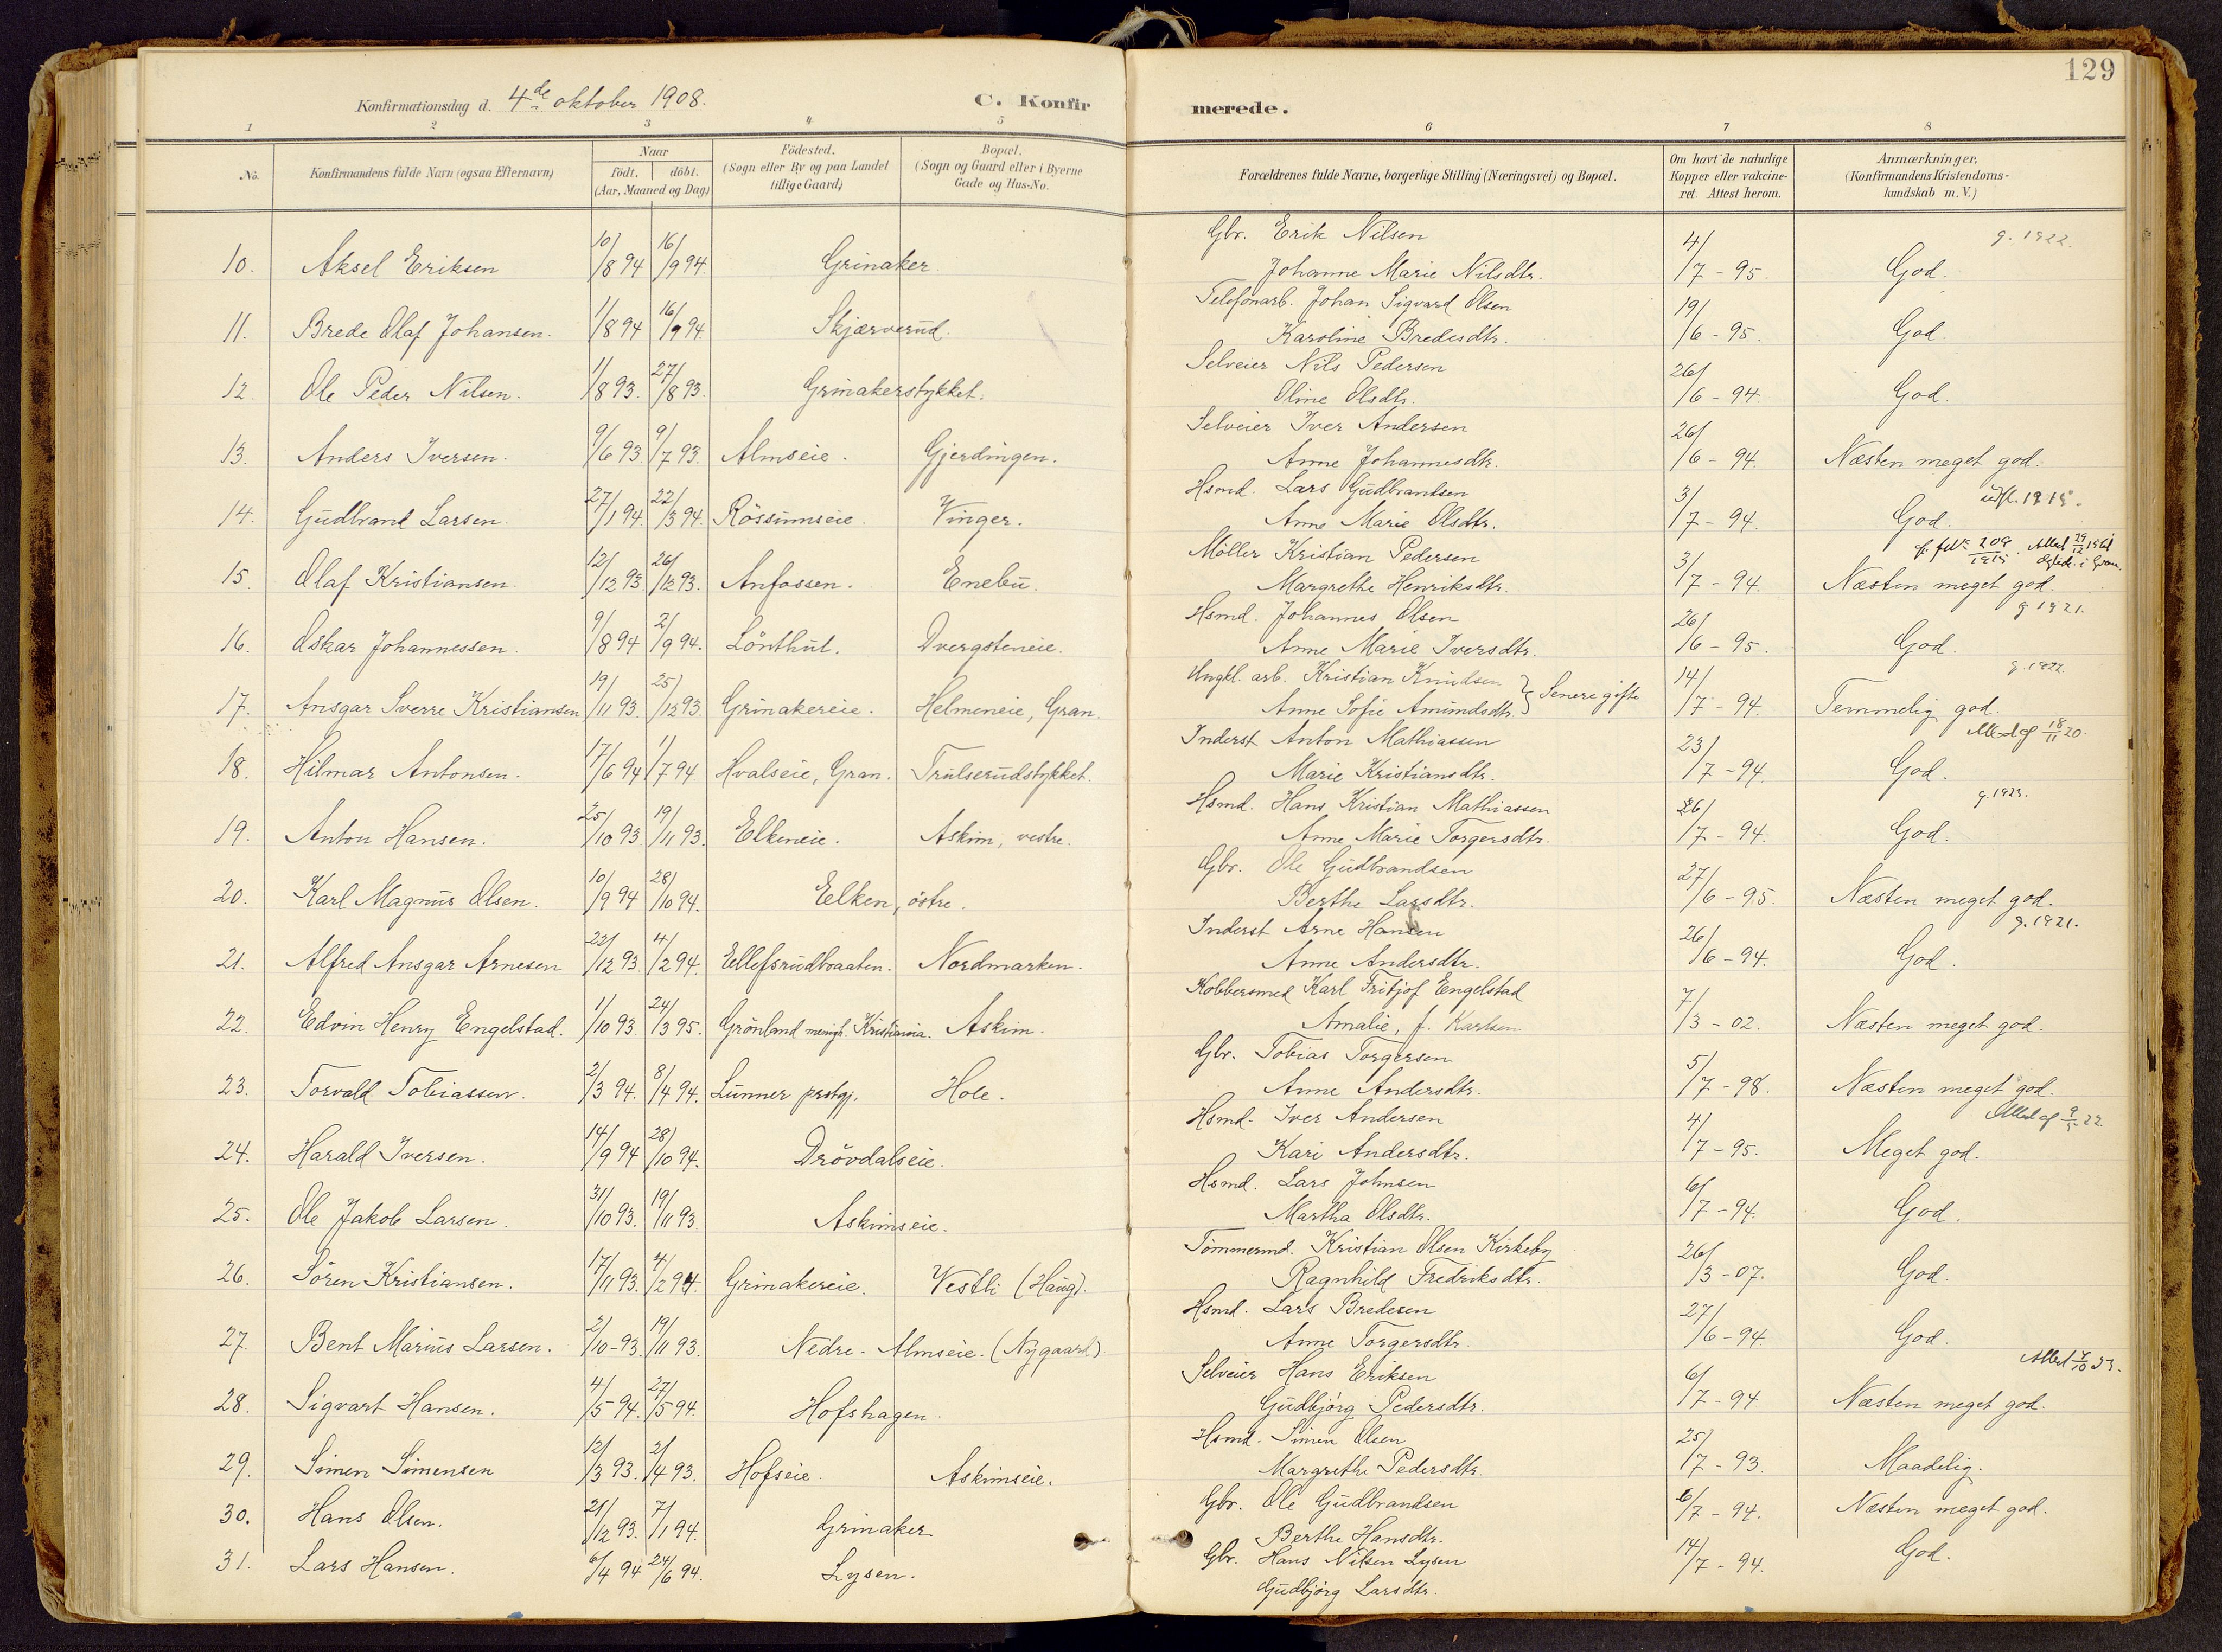 129
Konfirmationsdag d. 4de oktober 1908. C. Konfir merede.
1 2 3 4 5 6 7 8
No. Konfirmandens fulde Navn (ogsaa Efternavn) Naar født. døbt. (Aar, Maaned og Dag) Födested. (Sogn eller By og paa Landet tillige Gaard) Bopæl. (Sogn og Gaard eller i Byerne Gade og Hus-No. Forældrenes fulde Navne, borgerlige Stilling (Næringsvei) og Bopæl. Om havt de naturlige Kopper eller vakcineret. Attest herom. Anmærkninger. (Konfirmandens Kristendomskundskab m. V.)
10. Aksel Eriksen 10/8 94 16/9 94. Grinaker Gbr. Erik Nilsen
Johanne Marie Nilsdtr. 4/7 - 95. God. g. 1922.
11. Brede Olaf Johansen. 1/8 94 16/9 94. Skjærverud. Telefonarb. Johan Sigvard Olsen
Karoline Bredesdtr. 19/6 - 95. God.
12. Ole Peder Nilsen. 1/8 93. 27/8 93. Grinakerstykket. Selveier Nils Pedersen
Oline Olsdtr. 26/6 - 94. God.
13. Anders Iversen. 9/6 93. 9/7 93. Almseie. Gjerdingen. Selveier Iver Andersen
Anne Johannesdtr. 26/6 - 94. Næsten meget god.
14. Gudbrand Larsen. 27/1 94. 22/3 94. Rössumseie. Vinger. Hsmd. Lars Gudbrandsen
Anne Marie Olsdtr. 3/7 - 94. God. 1915.
15. Olaf Kristiansen. 12/12 93. 26/12 93. Anfossen. Enebu. Møller Kristian Pedersen
Margrethe Henriksdtr. 3/7 - 94. Næsten meget god. 209/1915
16. Oskar Johannessen. 9/8 94 2/9 94. Lönthul. Dvergsteneie. Hsmd. Johannes Olsen
Anne Marie Iversdtr. 26/6 - 95. God. g 1921.
17. Ansgar Sverre Kristiansen 19/11 93. 25/12 93. Grinakereie. Helmeneie, Gran. Ungkl. arb. Kristian Knudsen
Anne Sofie Amundsdtr. } Senere gifte 14/7 - 94. Temmelig god. g. 1922.
18. Hilmar Antonsen. 17/6 94 1/7 94 Hvalseie, Gran. Trulserudstykket. Inderst Anton Mathiassen
Marie Kristiansdtr. 23/7 - 94. God. 18/11 20.
19. Anton Hansen. 25/10 93. 19/11 93. Elkeneie. Askim, vestre. Hsmd. Hans Kristian Mathiassen
Anne Marie Torgersdtr. 26/7 - 94. God. g. 1923.
20. Karl Magnus Olsen. 10/9 94 28/10 94. Eelken, östre. Gbr. Ole Gudbrandsen
Berthe Larsdtr. 27/6 - 95. Næsten meget god.
21. Alfred Ansgar Arnesen 22/12 93. 4/2 94. Ellefsrudbraaten. Nordmarken. Inderst Arne Hansen
Anne Andersdtr. 26/6 - 94. God. g. 1921.
22. Edvin Henry Engelstad. 1/10 93. 24/3 95. Grönland menigh. Kristiania. Askim. Kobbersmed Karl Fritjof Engelstad
Amalie, f. Karlsen 7/3 - 02. Næsten meget god.
23. Torvald Tobiassen. 2/3 94. 8/4 94. Lunner prstgj. Hole. Gbr. Tobias Torgersen
Anne Andersdtr. 5/7 - 98. Næsten meget god.
24. Harald Iversen. 14/9 94 28/10 94. Drövdalseie. Hsmd. Iver Andersen
Kari Andersdtr. 4/7 - 95. Meget god.
25. Ole Jakob Larsen. 31/10 93. 19/11 93. Askimseie. Hsmd. Lars Johnsen
Martha Olsdtr. 6/7 - 94. God.
26. Sören Kristiansen. 17/11 93. 4/2 94. Grinakereie. Vestli (Haug). Tömmermd. Kristian Olsen Kirkeby
Ragnhild Fredriksdtr. 26/3 - 07. God.
27. Bent Marius Larsen. 2/10 - 93. 19/11 93. Nedre - Almseie. (Nygaard) Hsmd. Lars Bredesen
Anne Torgersdtr. 27/6 - 94. God.
28. Sigvart Hansen. 4/5 94. 27/5 94. Hofshagen. Selveier Hans Eriksen
Gudbjørg Pedersdtr. 6/7 - 94 Næsten meget god.
29. Simen Simensen 12/3 93. 2/4 93. Hofseie. Askimseie. Hsmd. Simen Olsen
Margrethe Pedersdtr. 25/7 - 93. Maadelig.
30. Hans Olsen. 21/12 93. 7/1 94. Grinaker Gbr. Ole Gudbrandsen
Berthe Hansdtr. 6/7 - 94. Næsten meget god.
31. Lars Hansen. 6/4 94 24/6 94. Lysen. Gbr. Hans Nilsen Lysen
Gudbjørg Larsdtr. 14/7 - 94. God.